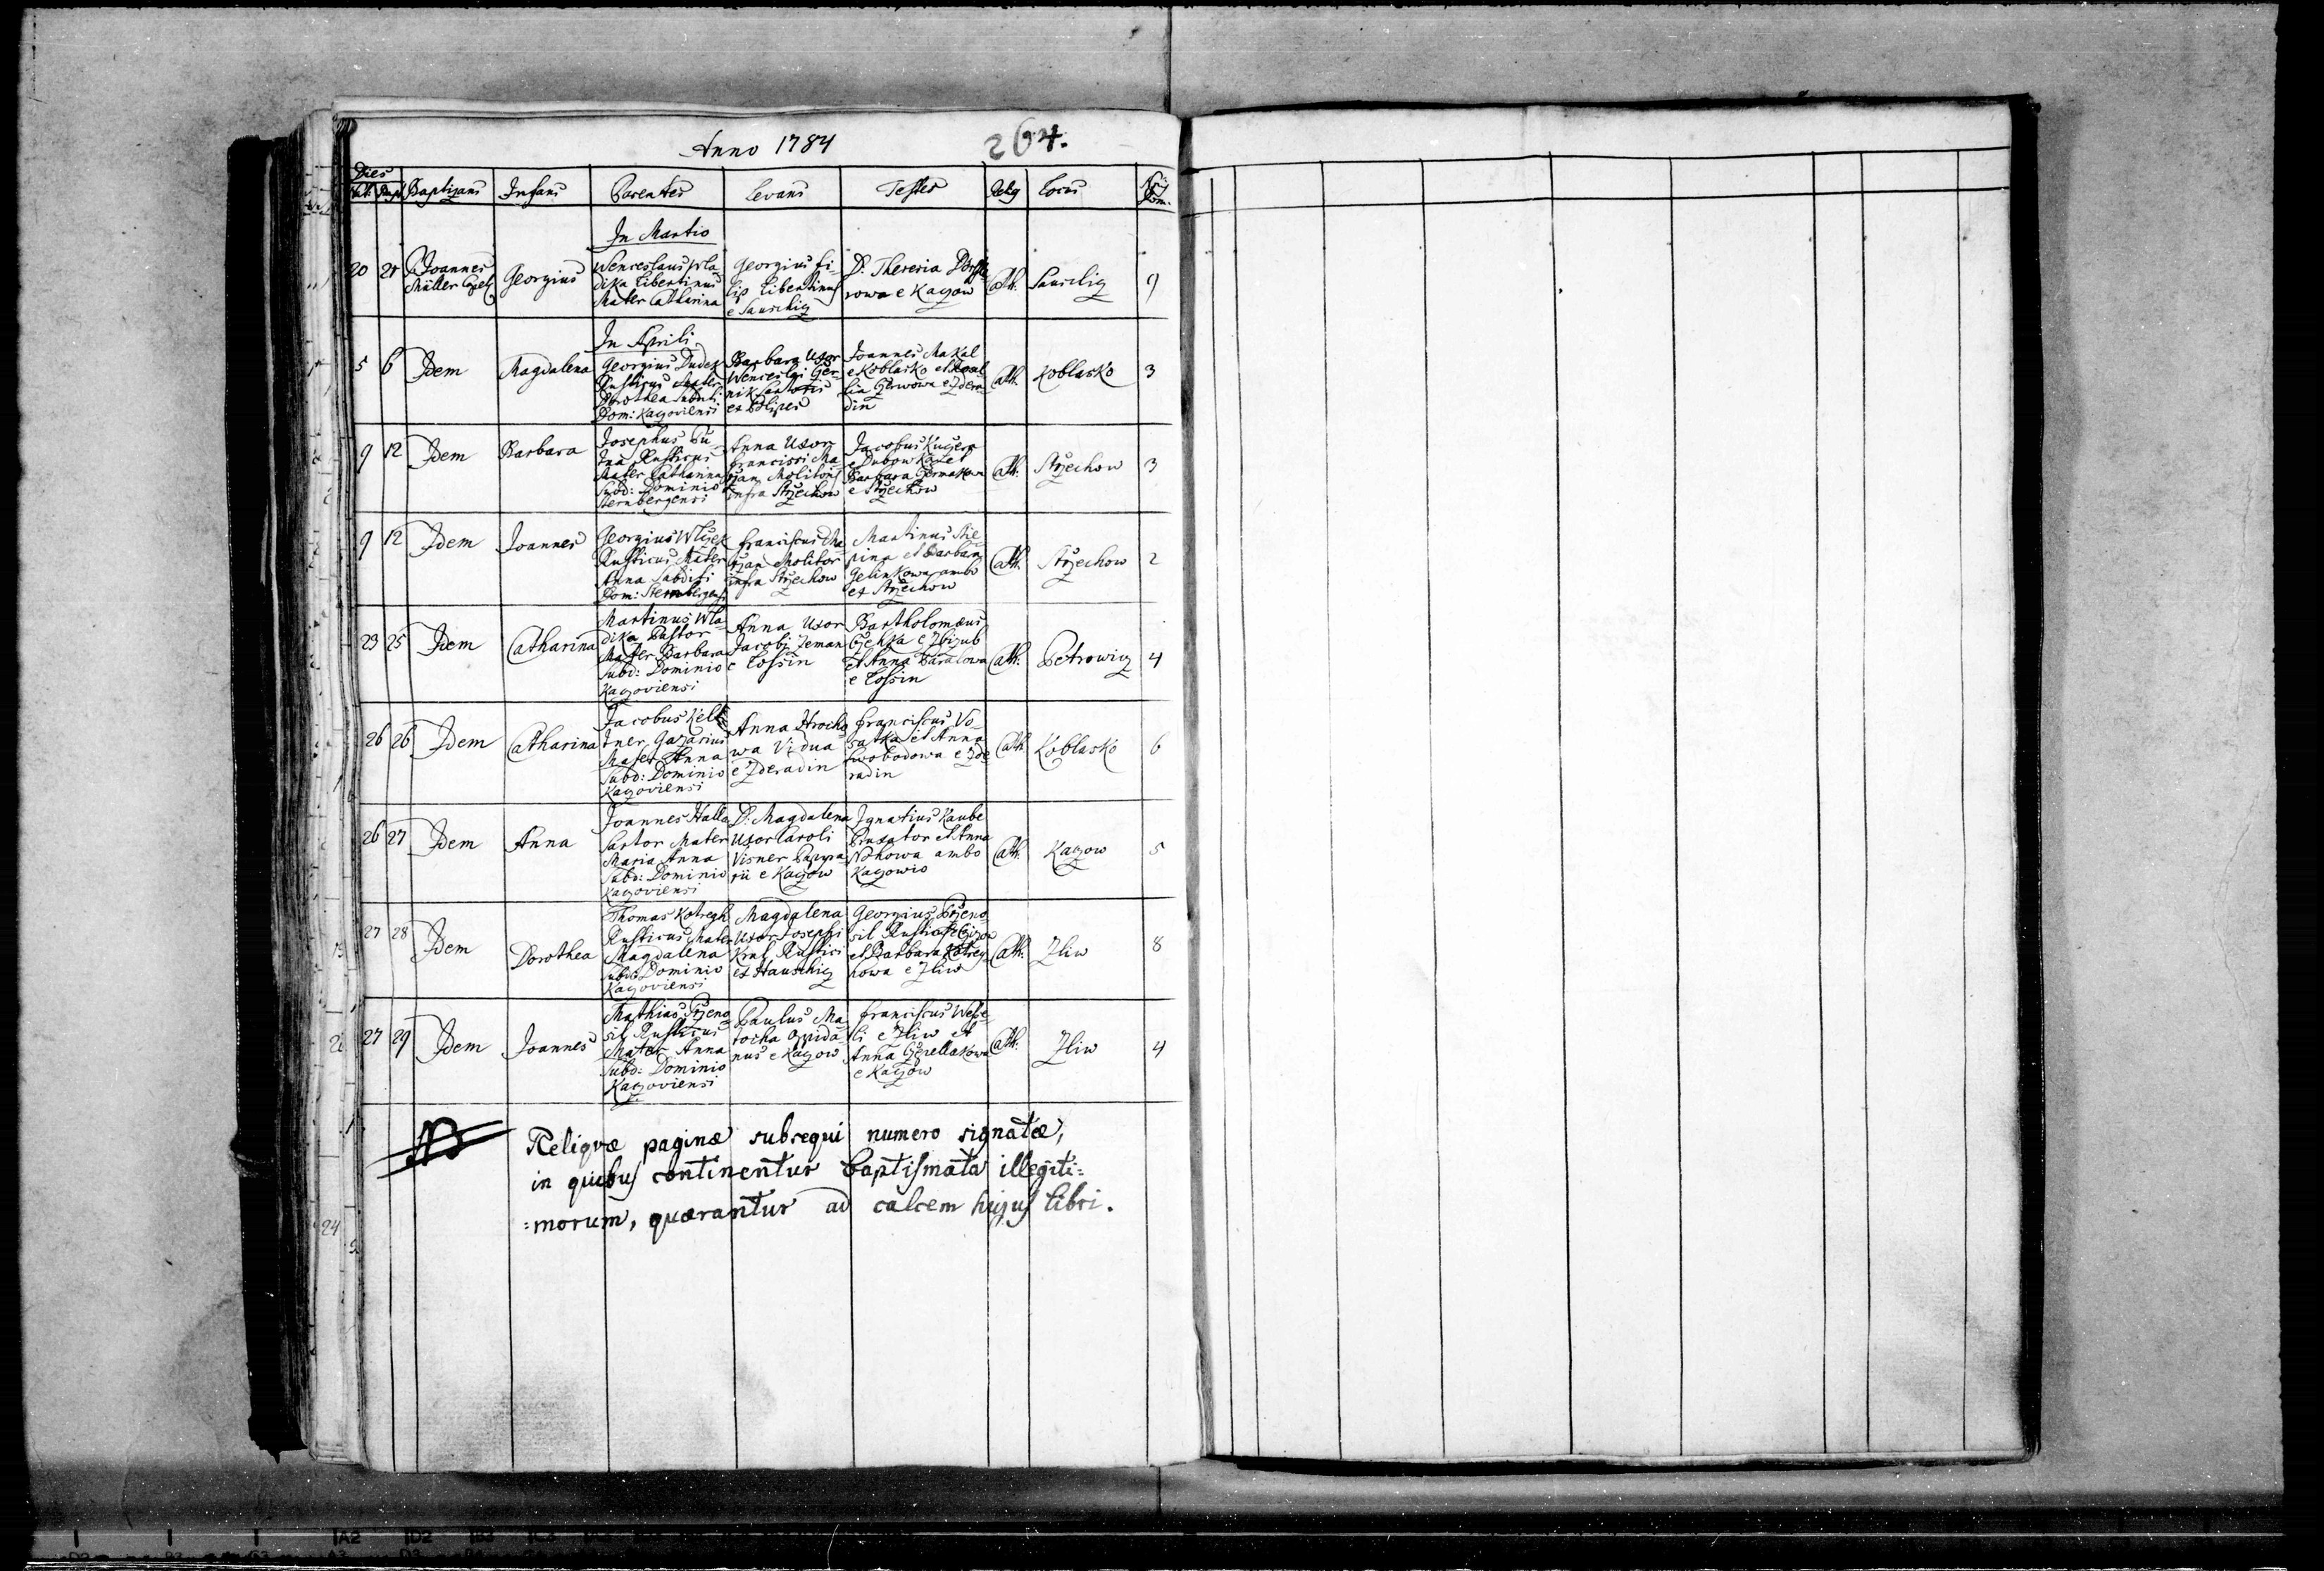 Anno 1784
264.
Dies
Nat. Bapt. Baptizans Infans Parentes Levans Testes Relig Locus Nrus Dom.
In Martio
20 21 P. Joannes
Müller Georgius Wenceslaus Wla-
dika Libertinus
Mater Catharina Georgius fi-
lip Libertinus
e Sauschiz D. Theresia
rowa e Kazow Cath. Sauschiz 9
In Aprili
5 6 Idem Magdalena Georgius Dudek
Rusticus Mater
Dorothea Subditi
Dom: Kazoviensi Barbara Uxor
Wenceslai Ger-
nik
et Polipes Joannes Makal
e Koblasko et Rosal-
lia Gerwowa e Zdera-
din Cath. Koblasko 3
9 12 Idem Barbara Josephus Tu-
Rusticus
Mater Catharina
Subd: Dominio
Sternbergensi Anna Uxor
Francisci Ma-
Molitoris
infra Strzechow Jacobus Kuczera
e Dubowka et
Barbara
e Strzechow Cath. Strzechow 3
9 12 Idem Joannes Georgius Wlczek
Rusticus Mater
Anna Subditi
Dom: Sternbergensi Franciscus Ma-
Molitor
infra Strzechow Martinus Stie-
pina et Barbara
Gelinkowa ambo
ex Strzechow Cath. Strzechow 2
23 25 Idem Catharina Martinus Wla-
dika Pastor
Mater Barbara
Subd: Dominio
Kazoviensi Anna Uxor
Jacobi Zeman
e Lossin Bartholomæus
e Zbizub
et Anna Paralowa
e Lossin Cath. Petrowiz 4
26 26 Idem Catharina Jacobus Kell-
tner Gazarius
Mater Anna
Subd: Dominio
Kazoviensi Anna Hrocho-
wa Vidua
e Zderadin Franciscus Vo-
satka et Anna
Swobodowa e Zde-
radin Cath Koblasko 6
26 27 Idem Anna Joannes Halla
Sartor Mater
Maria Anna
Subd: Dominio
Kazoviensi D. Magdalena
Uxor Caroli
Visner
rii e Kazow Ignatius Kaube
Braxator et Anna
ambo
Kazowio Cath. Kazow 5
27 28 Idem Dorothea Thomas Kotregh
Rusticus Mater
Magdalena
Subd: Dominio
Kazoviensi Magdalena
Uxor Josephi
Kral Rustici
ex Hauschiz Georgius Przeno-
sil
et Barbara Kotreg-
howa e Zliw Cath. Zliw 8
27 29 Idem Joannes Mathias Przeno-
sil Rusticus
Mater Anna
Subd: Dominio
Kazoviensi Paulus Ma-
tocha oppida-
nus e Kazow Franciscus Wese-
li e Zliw et
Anna Czepellakowa
e Kazow Cath. Zliw 4
NB Reliqvæ paginæ subsequi numero signatæ,
in quibus continentur baptismata illegiti=
=morum, quærantur ad calcem hujus libri.